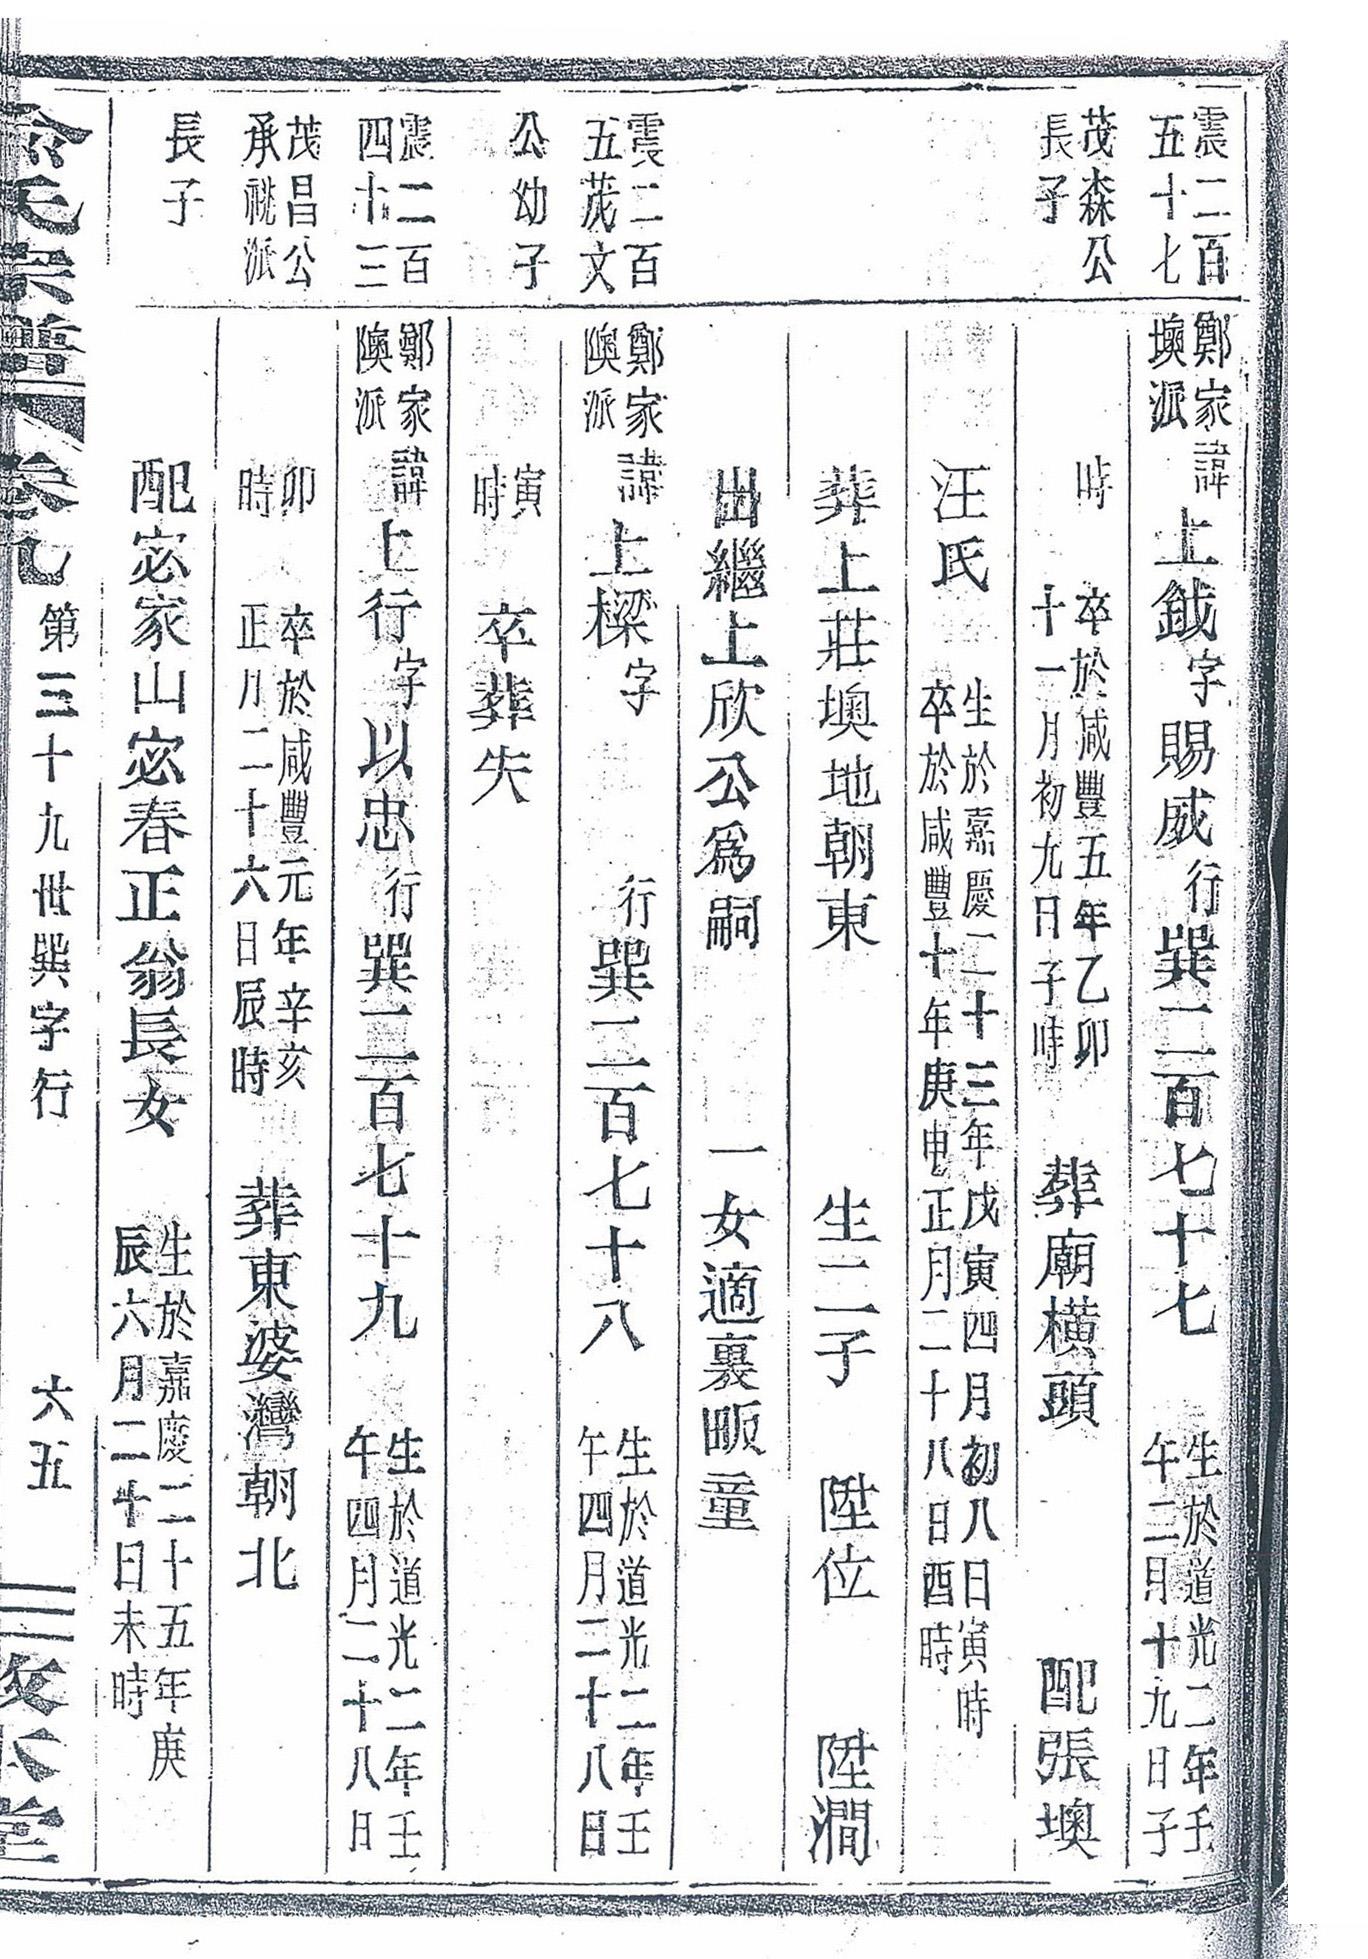 震二百
五十七
茂森公
長子
鄭家
墺派
諱上鉞字賜威行巽二百七十七
生於道光二年壬
午二月十九日子
時
卒於咸豐五年乙卯
十一月初九日子時
葬廟橫頭
配張墺
汪氏
生於嘉慶二十三年戊寅四月初八日寅時
卒於咸豐十年庚申正月二十八日酉時
葬上莊墺地朝東
生二子
陞位
陞澗
出繼上欣公爲嗣
一女適裏畈童
震二百
五茂文
公幼子
鄭家
隩派
諱上樑字
行巽二百七十八
生於道光二年壬
午四月二十八日
寅
時
卒葬失
震二百
四十三
茂昌公
承祧派
長子
鄭家
隩派
諱上行字以忠行巽二百七十九
生於道光二年壬
午四月二十八日
卯
時
卒於咸豐元年辛亥
正月二十六日辰時
葬東婆灣朝北
配宓家山宓春正翁長女
生於嘉慶二十五年庚
辰六月二十日未時
氏宗譜
卷九
第三十九世巽字行
六五